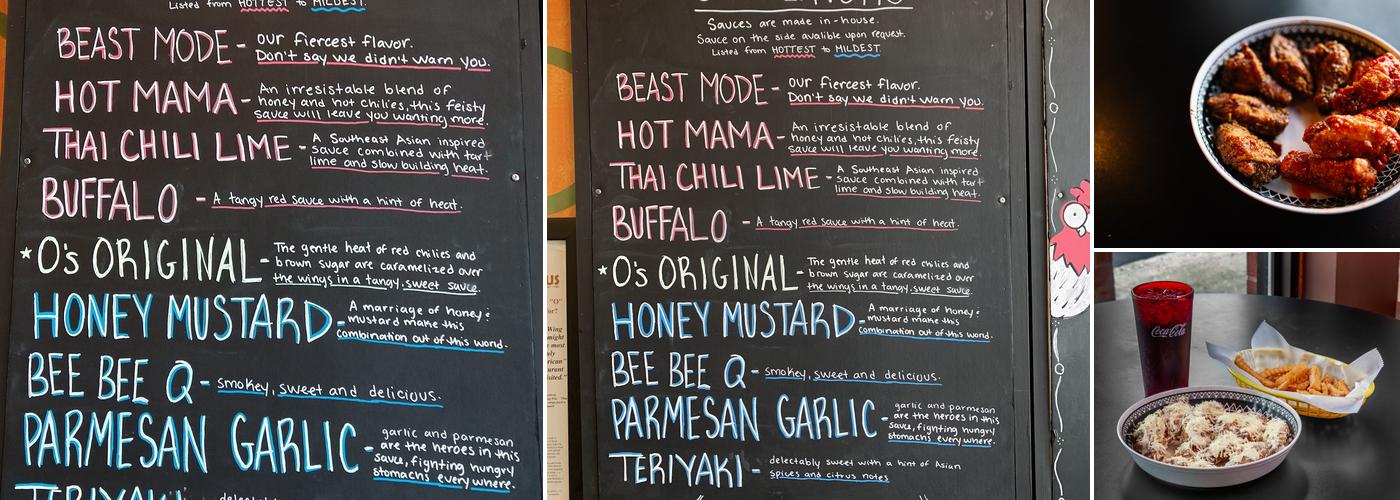 Listed from HOTTEST to MILDEST.
BEAST MODE - our fiercest flavor.
Don't say we didn't warn you.
HOT MAMA - An irresistable blend of
honey and hot chilies, this feisty
sauce will leave you wanting more.
THAI CHILI LIME - A Southeast Asian inspired
sauce combined with tart
lime and slow building heat.
BUFFALO - A tangy red sauce with a hint of heat.
★ O's ORIGINAL - The gentle heat of red chilies and
brown sugar are caramelized over
the wings in a tangy, sweet sauce.
HONEY MUSTARD - A marriage of honey &
mustard make this
combination out of this world.
BEE BEE Q - smokey, sweet and delicious.
PARMESAN GARLIC - garlic and parmesan
are the heroes in this
sauce, fighting hungry
stomachs everywhere.
TERIYAKI
Sauces are made in-house.
Sauce on the side avalible upon request.
Listed from HOTTEST to MILDEST
BEAST MODE - our fiercest flavor.
Don't say we didn't warn you.
HOT MAMA - An irresistable blend of
honey and hot chilies, this feisty
sauce will leave you wanting more.
THAI CHILI LIME - A Southeast Asian inspired
sauce combined with tart
lime and slow building heat.
BUFFALO - A tangy red sauce with a hint of heat.
★ O's ORIGINAL - The gentle heat of red chilies and
brown sugar are caramelized over
the wings in a tangy, sweet sauce.
HONEY MUSTARD - A marriage of honey &
mustard make this
combination out of this world.
BEE BEE Q - smokey, sweet and delicious.
PARMESAN GARLIC - garlic and parmesan
are the heroes in this
sauce, fighting hungry
stomachs everywhere.
TERIYAKI - delectably sweet with a hint of Asian
spices and citrus notes
US
"O"
for?
Wing
might
most
Coca-Cola